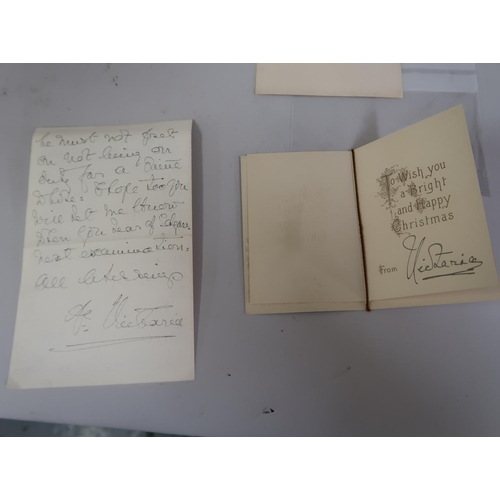 he must not fret
on not being on
duty for a
while: I hope too you
will let me know
when you hear of
next examination:
All blessings
of Victoria
To Wish you
a Bright
and Happy
Christmas
From Victoria